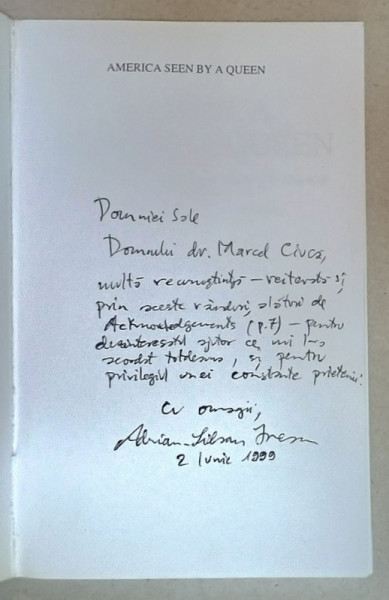 AMERICA SEEN BY A QUEEN
Domniei Sale
Domnului dr. Marcel Ciucă,
multă recunoștință – reiterată și
prin aceste rânduri, alături de
Acknowledgements (p. 7) – pentru
dezinteresatul ajutor ce mi l-a
acordat totdeauna, și pentru
privilegiul unei constante prietenii!
Cu omagii,
Adrian-Silvan Ionescu
2 Iunie 1999